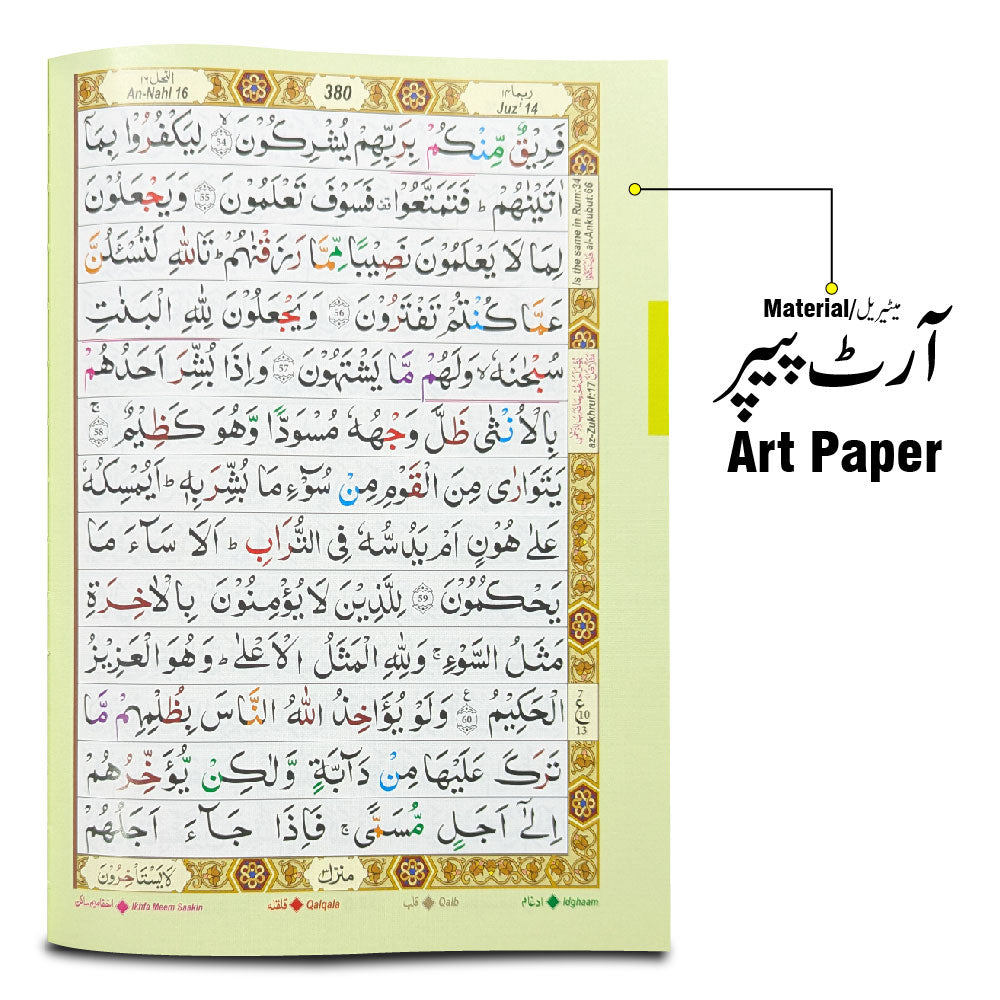 النحل ١٦
An-Nahl 16
380
ربما ١٤
Juz' 14
فَرِيْقٌ مِّنْكُمْ بِرَبِّهِمْ يُشْرِكُوْنَ ۙ 54 لِيَكْفُرُوْا بِمَاۤ
اٰتَيْنٰهُمْ ؕ فَتَمَتَّعُوْا ۫ فَسَوْفَ تَعْلَمُوْنَ 55 وَيَجْعَلُوْنَ
لِمَا لَا يَعْلَمُوْنَ نَصِيْبًا مِّمَّا رَزَقْنٰهُمْ ؕ تَاللّٰهِ لَتُسْـَٔلُنَّ
عَمَّا كُنْتُمْ تَفْتَرُوْنَ 56 وَيَجْعَلُوْنَ لِلّٰهِ الْبَنٰتِ
سُبْحٰنَهٗ ۙ وَلَهُمْ مَّا يَشْتَهُوْنَ 57 وَاِذَا بُشِّرَ اَحَدُهُمْ
بِالْاُنْثٰى ظَلَّ وَجْهُهٗ مُسْوَدًّا وَّهُوَ كَظِيْمٌ ۚ 58
يَتَوَارٰى مِنَ الْقَوْمِ مِنْ سُوْٓءِ مَا بُشِّرَ بِهٖ ؕ اَيُمْسِكُهٗ
عَلٰى هُوْنٍ اَمْ يَدُسُّهٗ فِى التُّرَابِ ؕ اَلَا سَآءَ مَا
يَحْكُمُوْنَ 59 لِلَّذِيْنَ لَا يُؤْمِنُوْنَ بِالْاٰخِرَةِ
مَثَلُ السَّوْءِ ۚ وَلِلّٰهِ الْمَثَلُ الْاَعْلٰى ؕ وَهُوَ الْعَزِيْزُ
الْحَكِيْمُ 60 ع وَلَوْ يُؤَاخِذُ اللّٰهُ النَّاسَ بِظُلْمِهِمْ مَّا
تَرَكَ عَلَيْهَا مِنْ دَآبَّةٍ وَّلٰكِنْ يُّؤَخِّرُهُمْ
اِلٰٓى اَجَلٍ مُّسَمًّى ۚ فَاِذَا جَآءَ اَجَلُهُمْ
لَا يَسْتَاْخِرُوْنَ
منزل ٣
Is the same in Rum:34
al-Ankubut:66
az-Zukhruf:17
7
ع 10
13
اخفا میم ساکن Ikhfa Meem Saakin
قلقله Qalqala
قلب Qalb
ادغام Idghaam
Material/میٹیریل
آرٹ پیپر
Art Paper